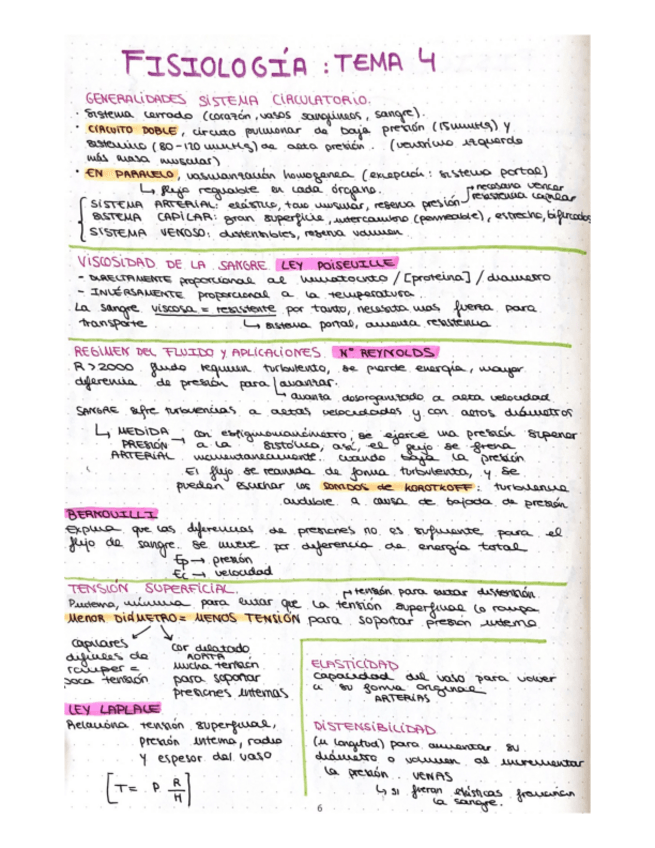 FISIOLOGÍA : TEMA 4
GENERALIDADES SISTEMA CIRCULATORIO.
· Sistema cerrado (corazón, vasos sanguíneos, sangre).
· CIRCUITO DOBLE, circuito pulmonar de baja presión (15mmHg) y
sistémico (80-120 mmHg) de alta presión. (ventrículo izquierdo
más masa muscular)
· EN PARALELO, vascularización homogénea (excepción: sistema portal)
↳ flujo regulable en cada órgano.
necesario vencer
resistencia capilar
SISTEMA ARTERIAL: elástico, tono muscular, reserva presión
SISTEMA CAPILAR: gran superficie, intercambio (permeable), estrecho, bifurcados
SISTEMA VENOSO: distensibles, reserva volumen
VISCOSIDAD DE LA SANGRE LEY POISEUILLE
- DIRECTAMENTE proporcional al hematocrito / [proteína] / diámetro
- INVERSAMENTE proporcional a la temperatura.
La sangre viscosa = resistente por tanto, necesita más fuerza para
transporte ↳ sistema portal, aumenta resistencia
REGIMEN DEL FLUIDO Y APLICACIONES Nº REYNOLDS
R>2000 fluido regimen turbulento, se pierde energía, mayor
diferencia de presión para avanzar.
↳ avanza desorganizado a alta velocidad
SANGRE sufre turbulencias a altas velocidades y con altos diámetros
↳ MEDIDA PRESIÓN ARTERIAL → con esfigmomanómetro, se ejerce una presión superior
a la sistólica, así, el flujo se frena
momentáneamente. cuando baja la presión
El flujo se reanuda de forma turbulenta, y se
pueden escuchar los SONIDOS DE KOROTKOFF: turbulencia
audible a causa de bajada de presión
BERNOUILLI
Explica que las diferencias de presiones no es suficiente para el
flujo de sangre. Se mueve por diferencia de energía total
Ep → presión
Ec → velocidad
TENSIÓN SUPERFICIAL.
→ tensión para evitar distensión.
mínima para evitar que la tensión superficial lo rompa
MENOR DIÁMETRO = MENOS TENSIÓN para soportar presión interna
capilares
difíciles de
romper =
poca tensión
cor dilatado
AORTA
mucha tensión
para soportar
presiones internas
LEY LAPLACE
Relaciona tensión superficial,
presión interna, radio
y espesor del vaso
[T = P R/H]
ELASTICIDAD
capacidad del vaso para volver
a su forma original
ARTERIAS
DISTENSIBILIDAD
(μ longitud) para aumentar su
diámetro o volumen al incrementar
la presión. VENAS
↳ si fueran elásticas
la sangre.
6